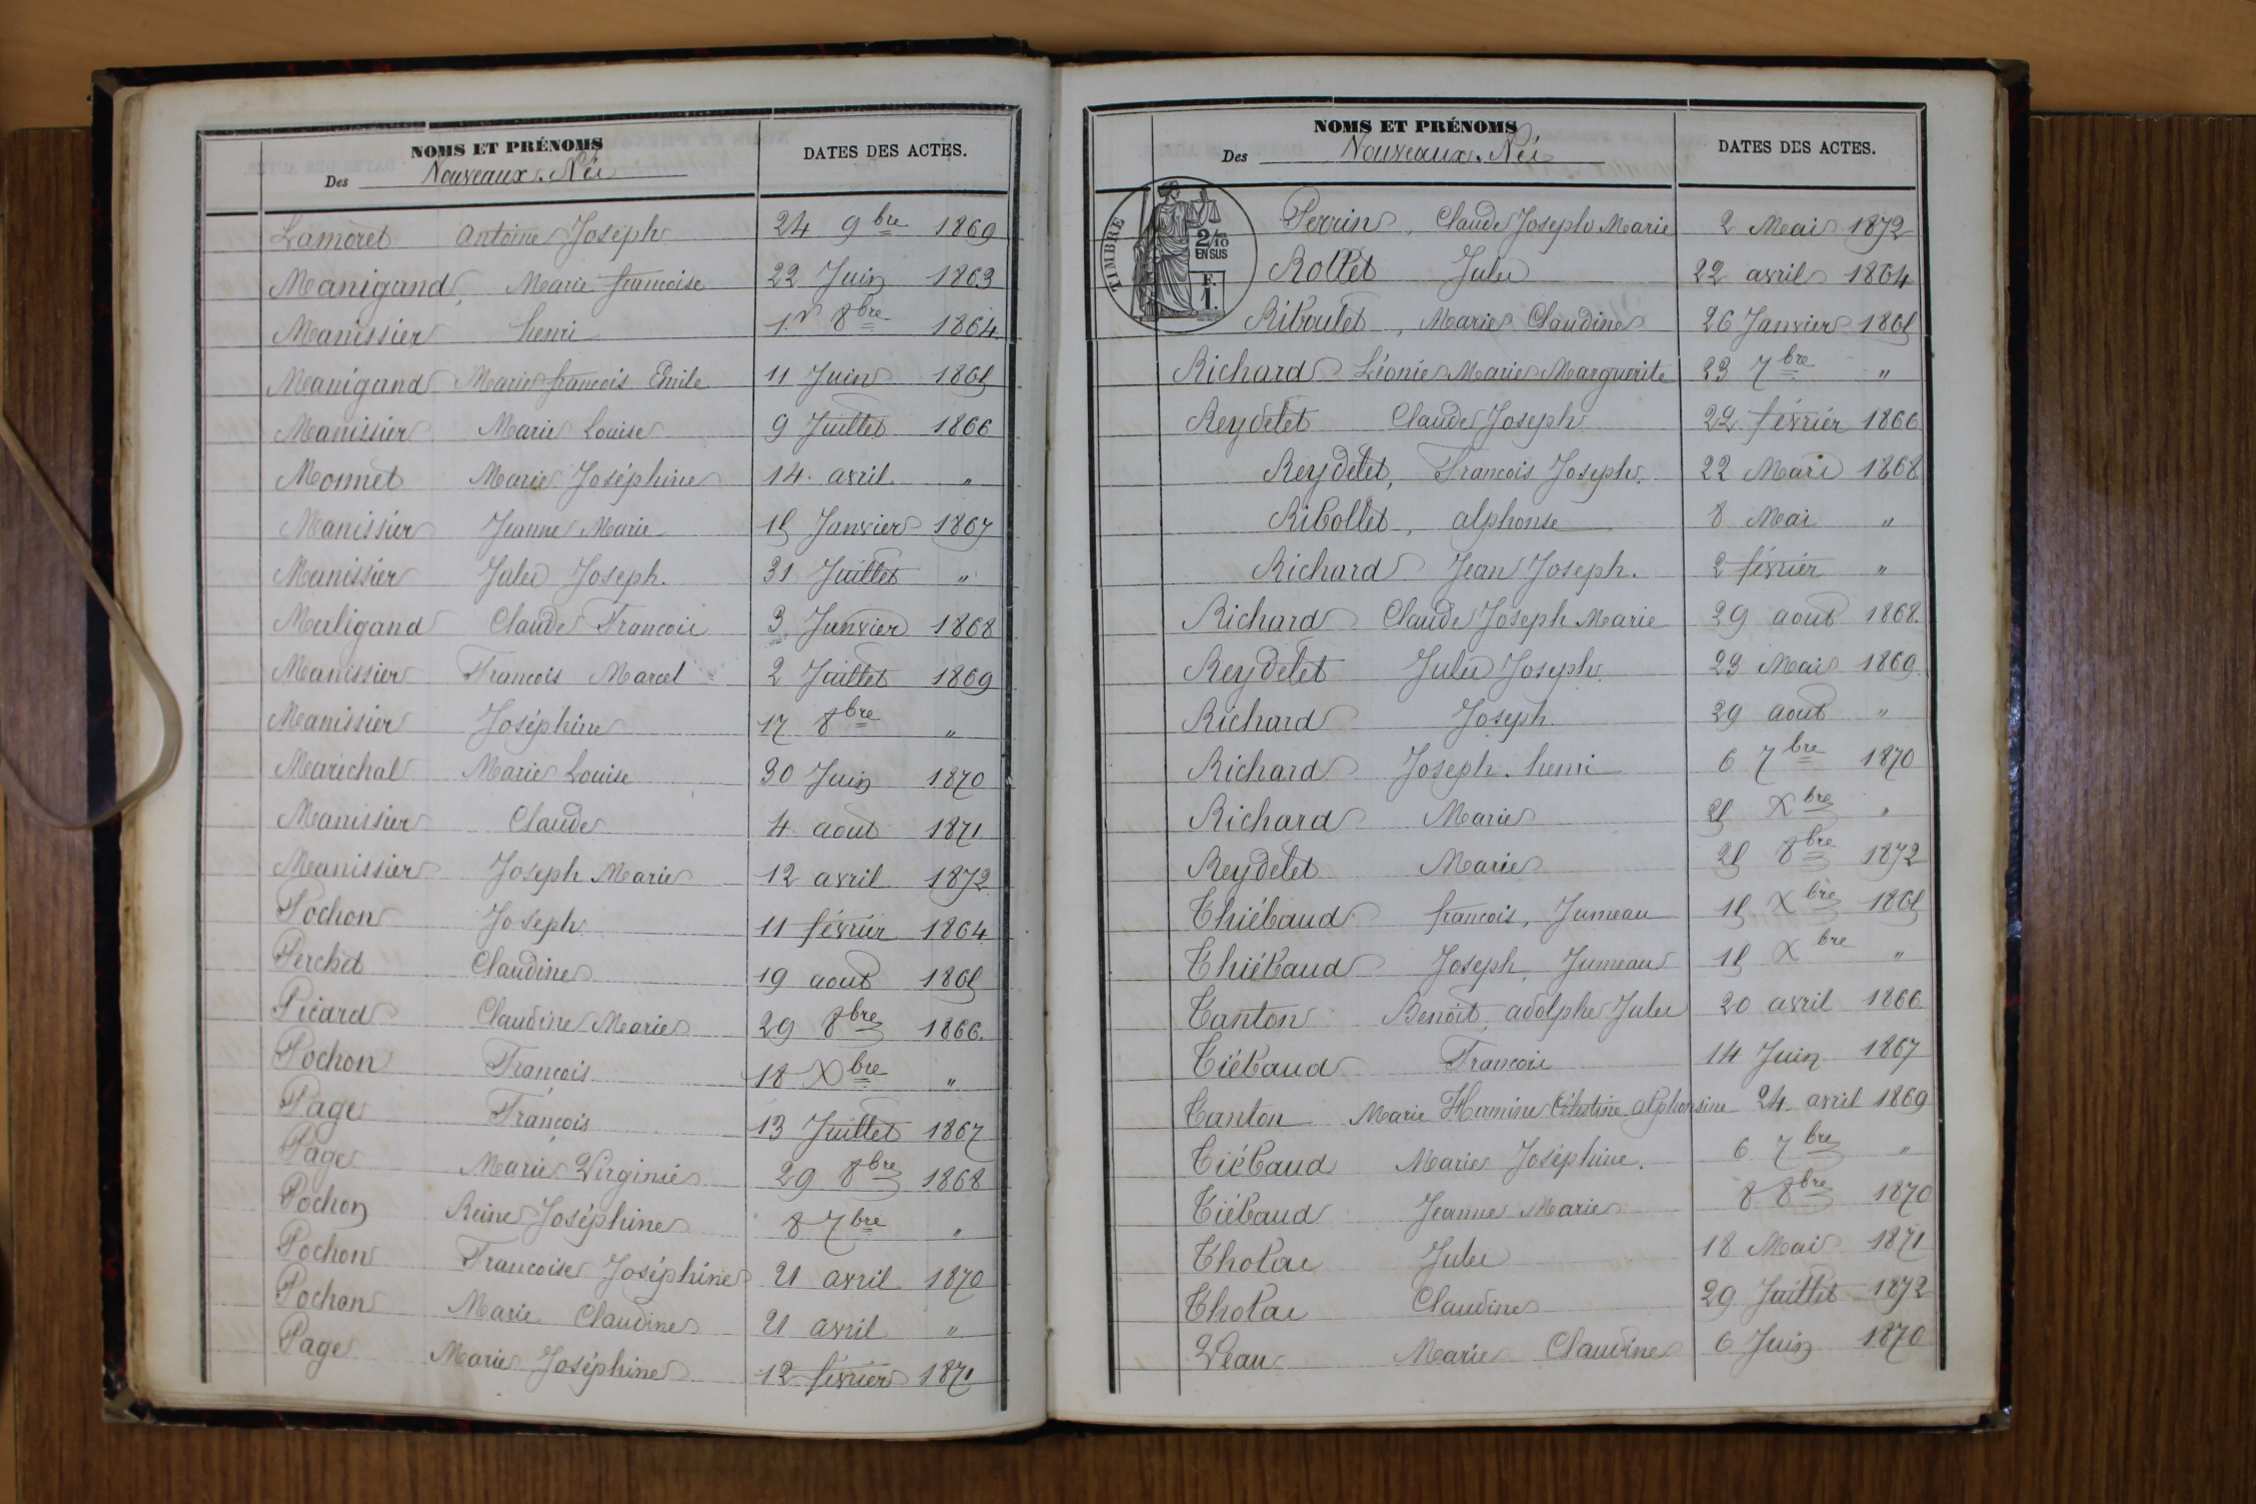 NOMS ET PRÉNOMS
Des Nouveaux-Nés
DATES DES ACTES.
Lamoret Antoine Joseph 24 9bre 1869
Manigand, Marie françoise 22 Juin 1863
Manissier henri 1er 8bre 1864
Manigand Marie françois Emile 11 Juin 1865
Manissier Marie Louise 9 Juillet 1866
Monnet Marie Joséphine 14 avril "
Manissier Jeanne Marie 15 Janvier 1867
Manissier Jules Joseph. 31 Juillet "
Maligand Claude François 3 Janvier 1868
Manissier François Marcel 2 Juillet 1869
Manissier Joséphine 17 8bre "
Maréchal Marie Louise 30 Juin 1870
Manissier Claude 4 août 1871
Manissier Joseph Marie 12 avril 1872
Pochon Joseph 11 février 1864
Perchet Claudine 19 août 1865
Picard Claudine Marie 29 8bre 1866.
Pochon François 18 Xbre "
Page François 13 Juillet 1867
Page Marie Virginie 29 8bre 1868
Pochon Reine Joséphine 8 7bre "
Pochon Francoise Joséphine 21 avril 1870
Pochon Marie Claudine 21 avril "
Page Marie Joséphine 12 février 1871
NOMS ET PRÉNOMS
Des Nouveaux-Nés
DATES DES ACTES.
TIMBRE
2/10
EN SUS
F.
1.
Perrin, Claude Joseph Marie 2 Mai 1872
Rollet Jules 22 avril 1864
Riboulet, Marie Claudine 26 Janvier 1865
Richard Léonie Marie Marguerite 23 7bre "
Reydelet Claude Joseph 22 février 1866
Reydelet, François Joseph. 22 Mars 1868
Ribollet, alphonse 8 Mai "
Richard Jean Joseph. 2 février "
Richard Claude Joseph Marie 29 août 1868.
Reydelet Jules Joseph 23 Mai 1869
Richard Joseph 29 août "
Richard Joseph. henri 6 7bre 1870
Richard Marie 25 Xbre "
Reydelet Marie 25 8bre 1872
Thiébaud françois, Jumeau 15 Xbre 1865
Thiébaud Joseph, Jumeau 15 Xbre "
Tanton Benoît, adolphe Jules 20 avril 1866
Tiébaud François 14 Juin 1867
Tanton Marie Hermine Célestine alphonsine 24 avril 1869
Tiébaud Marie Joséphine. 6 7bre "
Tiébaud Jeanne Marie 8 8bre 1870
Tholas Jules 18 Mai 1871
Tholas Claudine 29 Juillet 1872
Veau Marie Claudine 6 Juin 1870